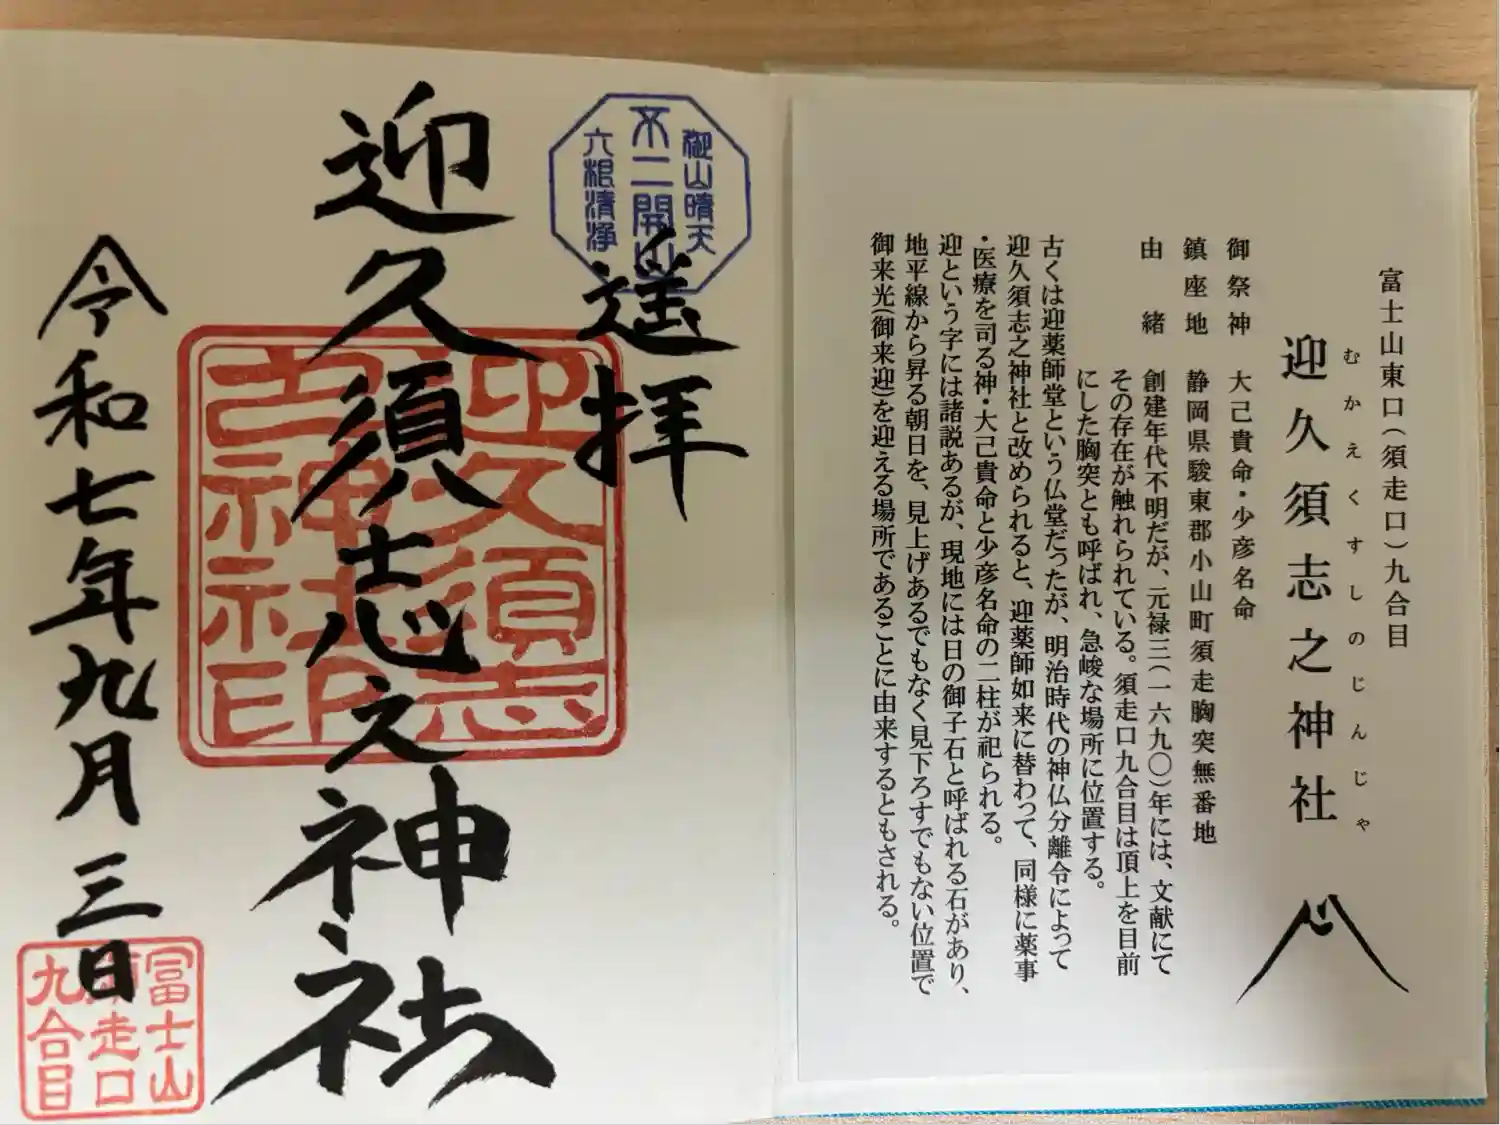 富士山東口（須走口）九合目
むかえくすしのじんじゃ
迎久須志之神社
御祭神　大己貴命・少彦名命
鎮座地　静岡県駿東郡小山町須走胸突無番地
由緒　創建年代不明だが、元禄三（一六九〇）年には、文献にて
その存在が触れられている。須走口九合目は頂上を目前
にした胸突とも呼ばれ、急峻な場所に位置する。
古くは迎薬師堂という仏堂だったが、明治時代の神仏分離令によって
迎久須志之神社と改められると、迎薬師如来に替わって、同様に薬事
・医療を司る神・大己貴命と少彦名命の二柱が祀られる。
迎という字には諸説あるが、現地には日の御子石と呼ばれる石があり、
地平線から昇る朝日を、見上げあるでもなく見下ろすでもない位置で
御来光（御来迎）を迎える場所であることに由来するともされる。
御山晴天
不二開山
六根清浄
遥拝
迎久須志之神社
迎久須志
之神社印
令和七年九月三日
富士山
須走口
九合目